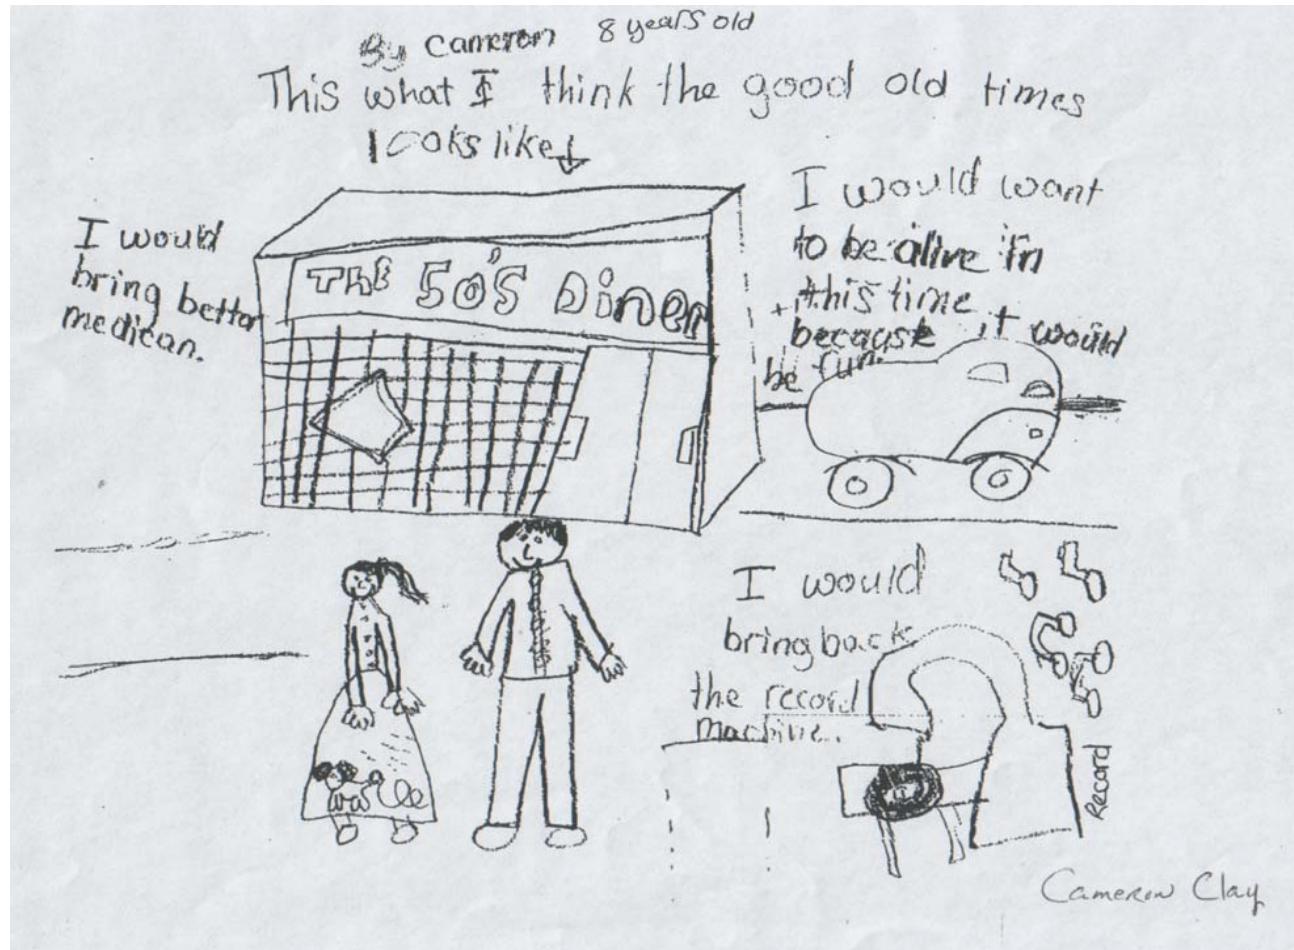 By Cameron 8 years old
This what I think the good old times
looks like
I would
bring better
medican.
The 50's Diner
I would want
to be alive in
this time
because it would
be fun.
I would
bring back
the record
machine.
Record
Cameron Clay